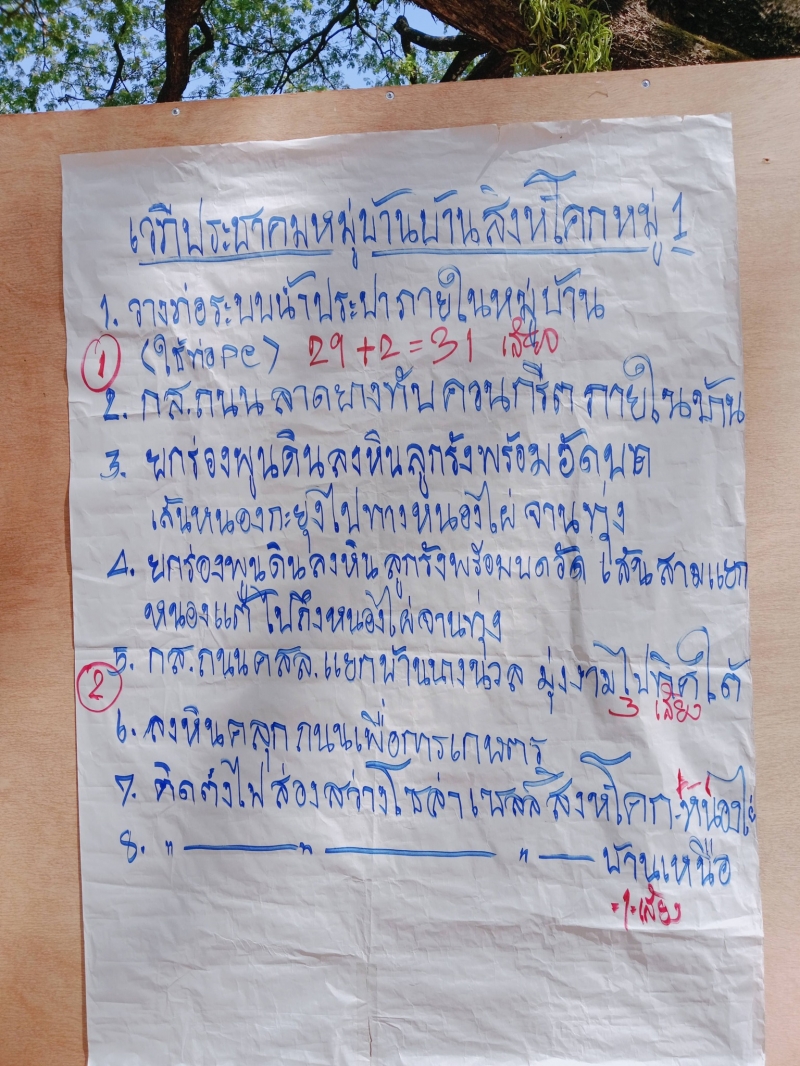 เวทีประชาคมหมู่บ้านบ้านสิงห์โคกหมู่ 1
1. วางท่อระบบน้ำประปาภายในหมู่บ้าน
① (ใช้ท่อ PE) 29+2=31 เสียง
2. กส.ถนนลาดยางทับควนกรีตภายในบ้าน
3. ยกร่องพูนดินลงหินลูกรังพร้อมอัดบด
เส้นหนองกะยุงไปทางหนองไผ่จานทุ่ง
4. ยกร่องพูนดินลงหินลูกรังพร้อมบดอัด เส้นสามแยก
หนองแต้ไปถึงหนองไผ่จานทุ่ง
5. กส.ถนนคสล.แยกบ้านนางนวล มุ่งงามไปทิศใต้
② 3 เสียง
6. ลงหินคลุกถนนเพื่อการเกษตร
7. ติดตั้งไฟส่องสว่างโซล่าเซลล์สิงห์โคก-หนองไผ่
8. " ——— " ——— " — บ้านเหนือ
=1= เสียง